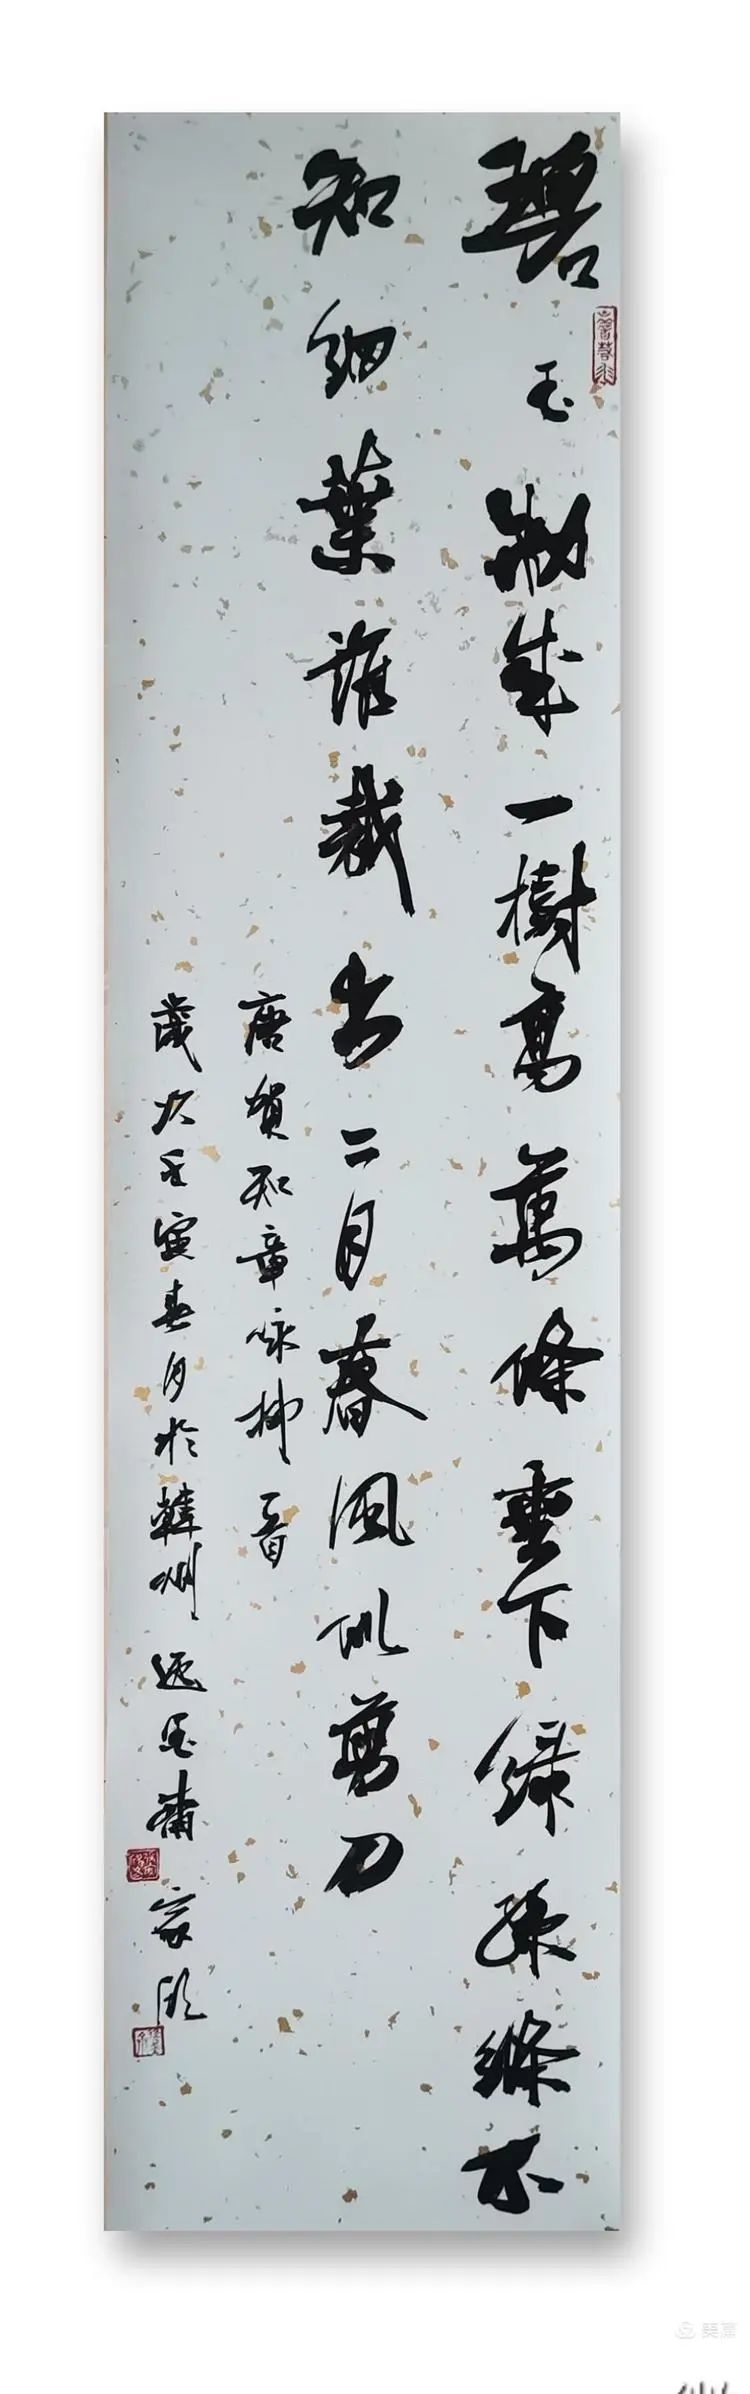 碧玉制成一樹高萬條垂下綠絲絛不
知細葉誰裁出二月春風似剪刀
唐賀知章咏柳一首
歲次壬寅春月於韓州
美篇